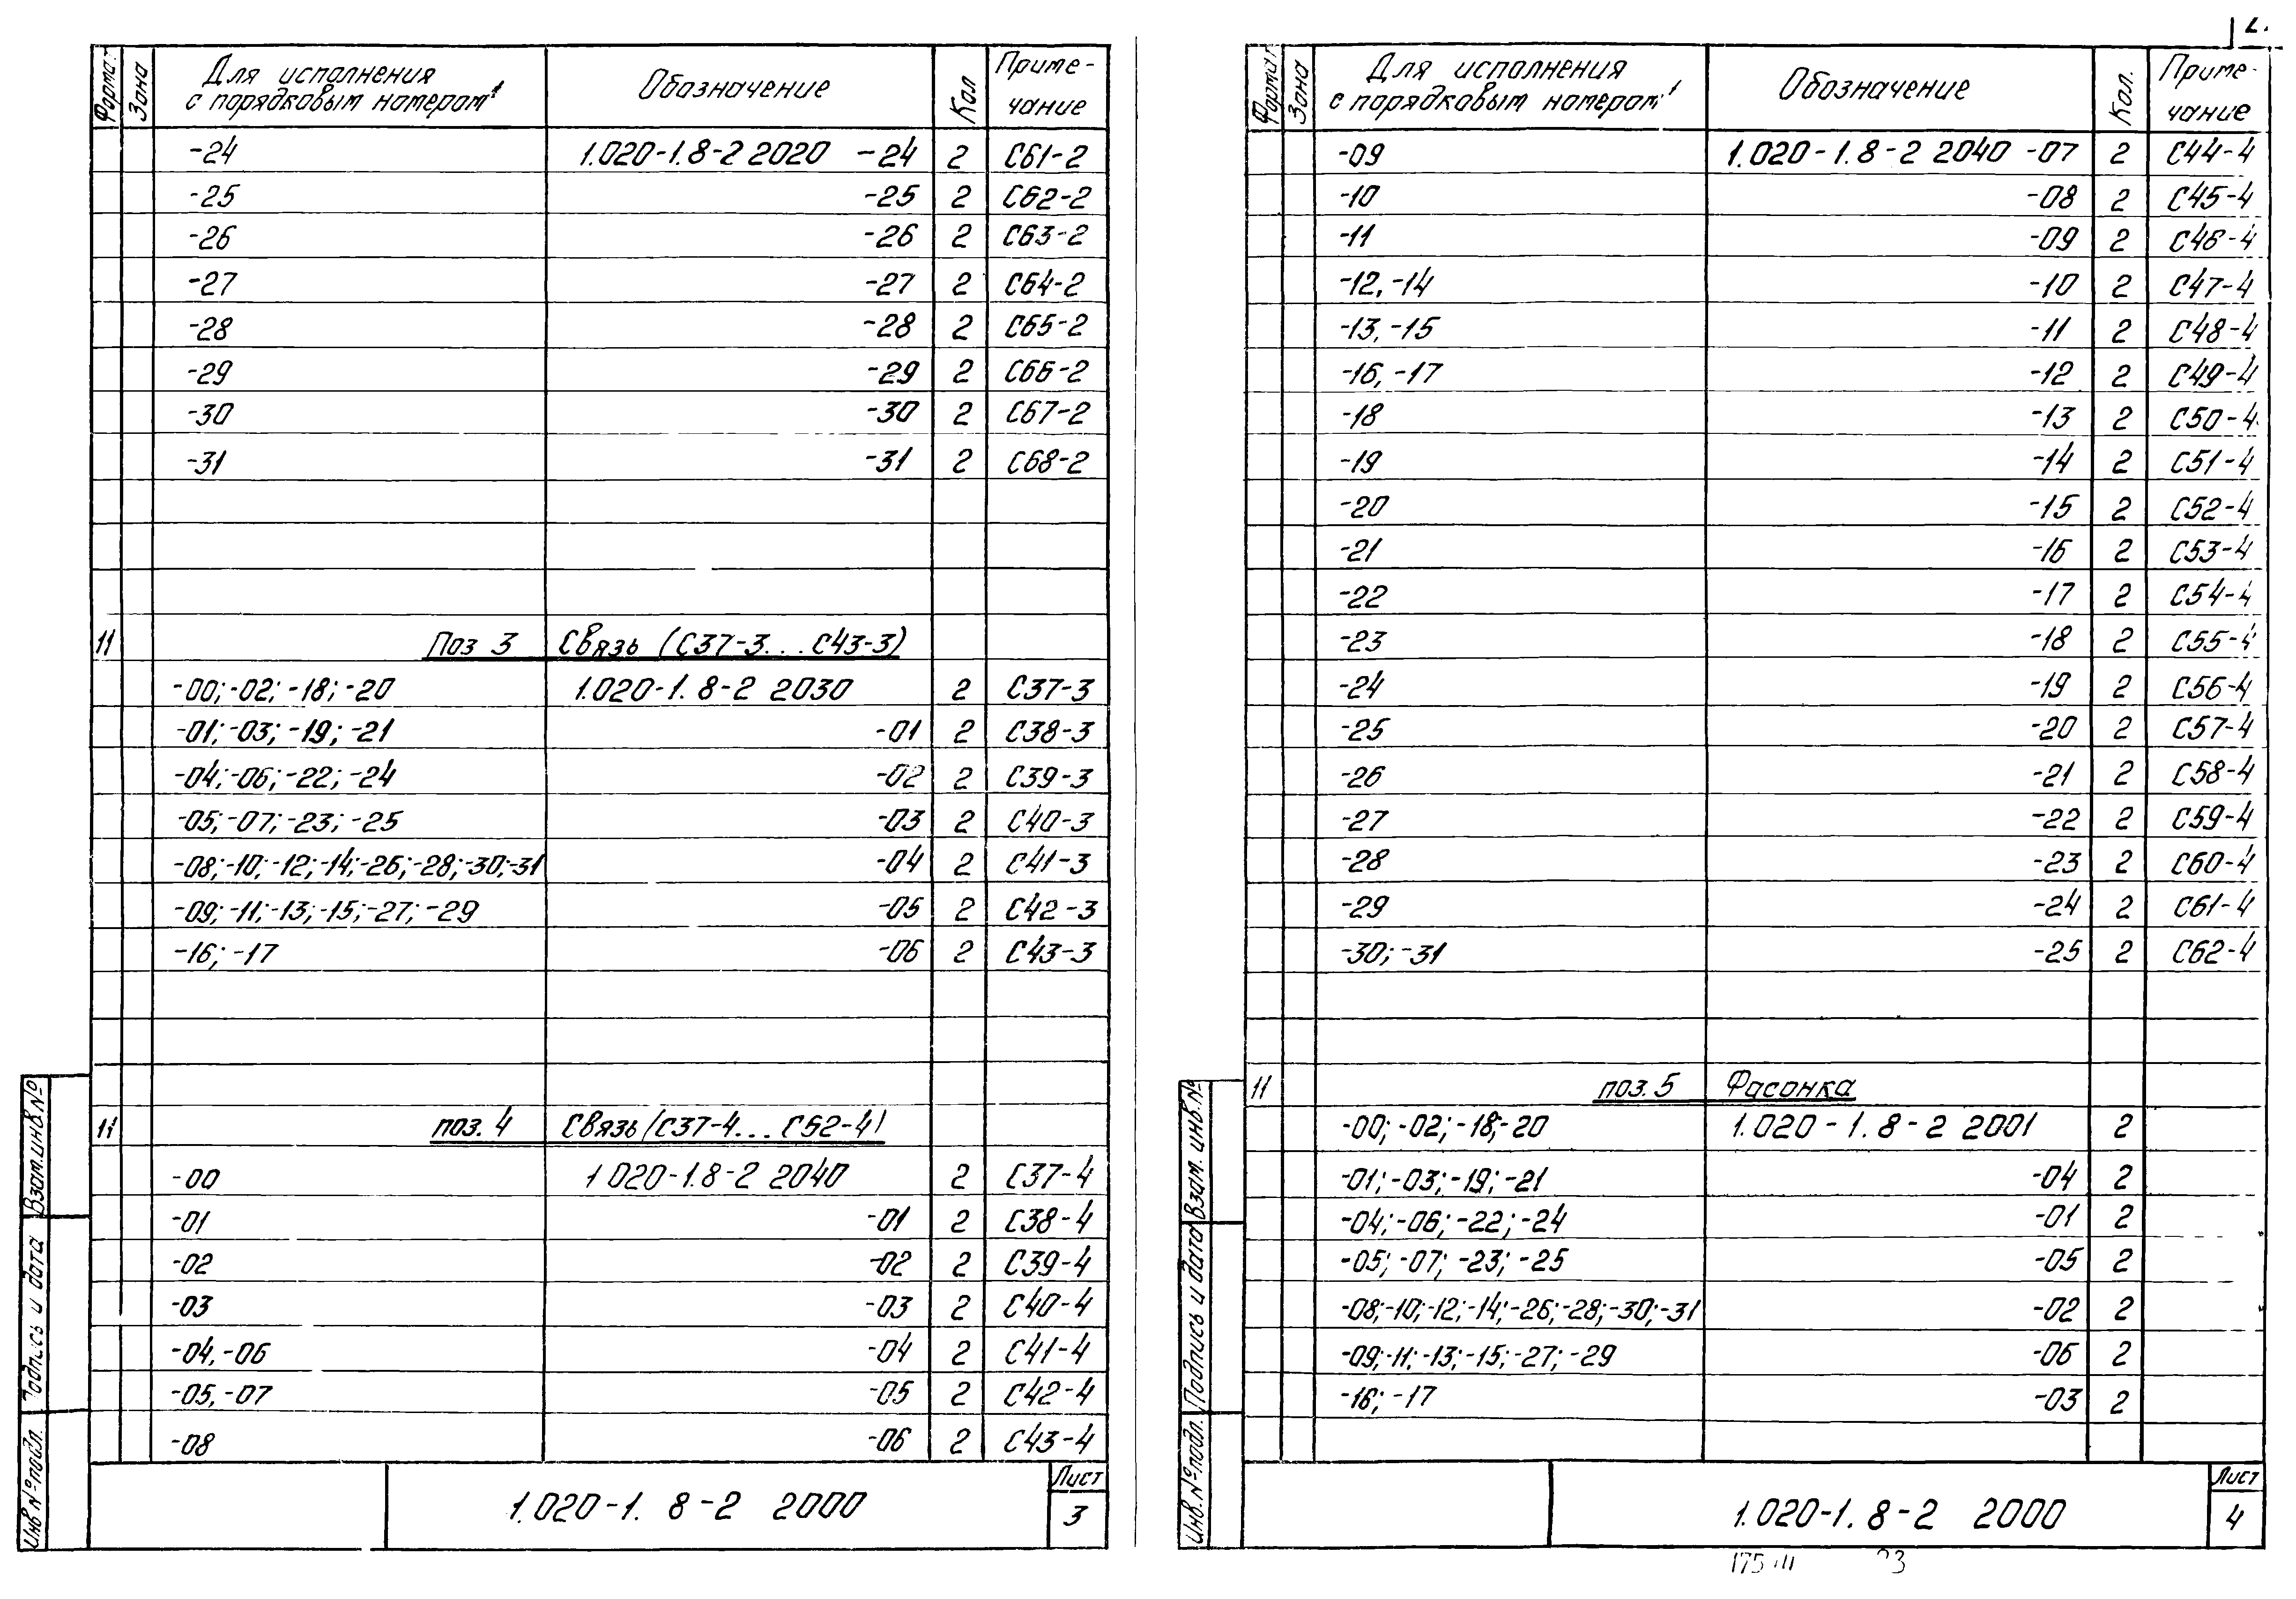 Формат Зона Для исполнения с порядковым номером¹ Обозначение Кол Приме-чание
-24 1.020-1.8-2 2020 -24 2 С61-2
-25 -25 2 С62-2
-26 -26 2 С63-2
-27 -27 2 С64-2
-28 -28 2 С65-2
-29 -29 2 С66-2
-30 -30 2 С67-2
-31 -31 2 С68-2
11 Поз 3 Связь (С37-3...С43-3)
-00; -02; -18; -20 1.020-1.8-2 2030 2 С37-3
-01; -03; -19; -21 -01 2 С38-3
-04; -06; -22; -24 -02 2 С39-3
-05; -07; -23; -25 -03 2 С40-3
-08; -10; -12; -14; -26; -28; -30; -31 -04 2 С41-3
-09; -11; -13; -15; -27; -29 -05 2 С42-3
-16; -17 -06 2 С43-3
11 поз. 4 Связь (С37-4...С52-4)
-00 1 020-1.8-2 2040 2 С37-4
-01 -01 2 С38-4
-02 -02 2 С39-4
-03 -03 2 С40-4
-04, -06 -04 2 С41-4
-05, -07 -05 2 С42-4
-08 -06 2 С43-4
Инв № подл. Подпись и дата Взам.инв.№
1.020-1. 8-2 2000
Лист
3
Формат Зона Для исполнения с порядковым номером¹ Обозначение Кол. Приме-чание
-09 1.020-1.8-2 2040 -07 2 С44-4
-10 -08 2 С45-4
-11 -09 2 С46-4
-12, -14 -10 2 С47-4
-13, -15 -11 2 С48-4
-16, -17 -12 2 С49-4
-18 -13 2 С50-4
-19 -14 2 С51-4
-20 -15 2 С52-4
-21 -16 2 С53-4
-22 -17 2 С54-4
-23 -18 2 С55-4
-24 -19 2 С56-4
-25 -20 2 С57-4
-26 -21 2 С58-4
-27 -22 2 С59-4
-28 -23 2 С60-4
-29 -24 2 С61-4
-30; -31 -25 2 С62-4
11 поз. 5 Фасонка
-00; -02; -18; -20 1.020-1.8-2 2001 2
-01; -03; -19; -21 -04 2
-04; -06; -22; -24 -01 2
-05; -07; -23; -25 -05 2
-08; -10; -12; -14; -26; -28; -30; -31 -02 2
-09; -11; -13; -15; -27; -29 -06 2
-16; -17 -03 2
Инв. № подл. Подпись и дата Взам. инв. №
1.020-1. 8-2 2000
Лист
4